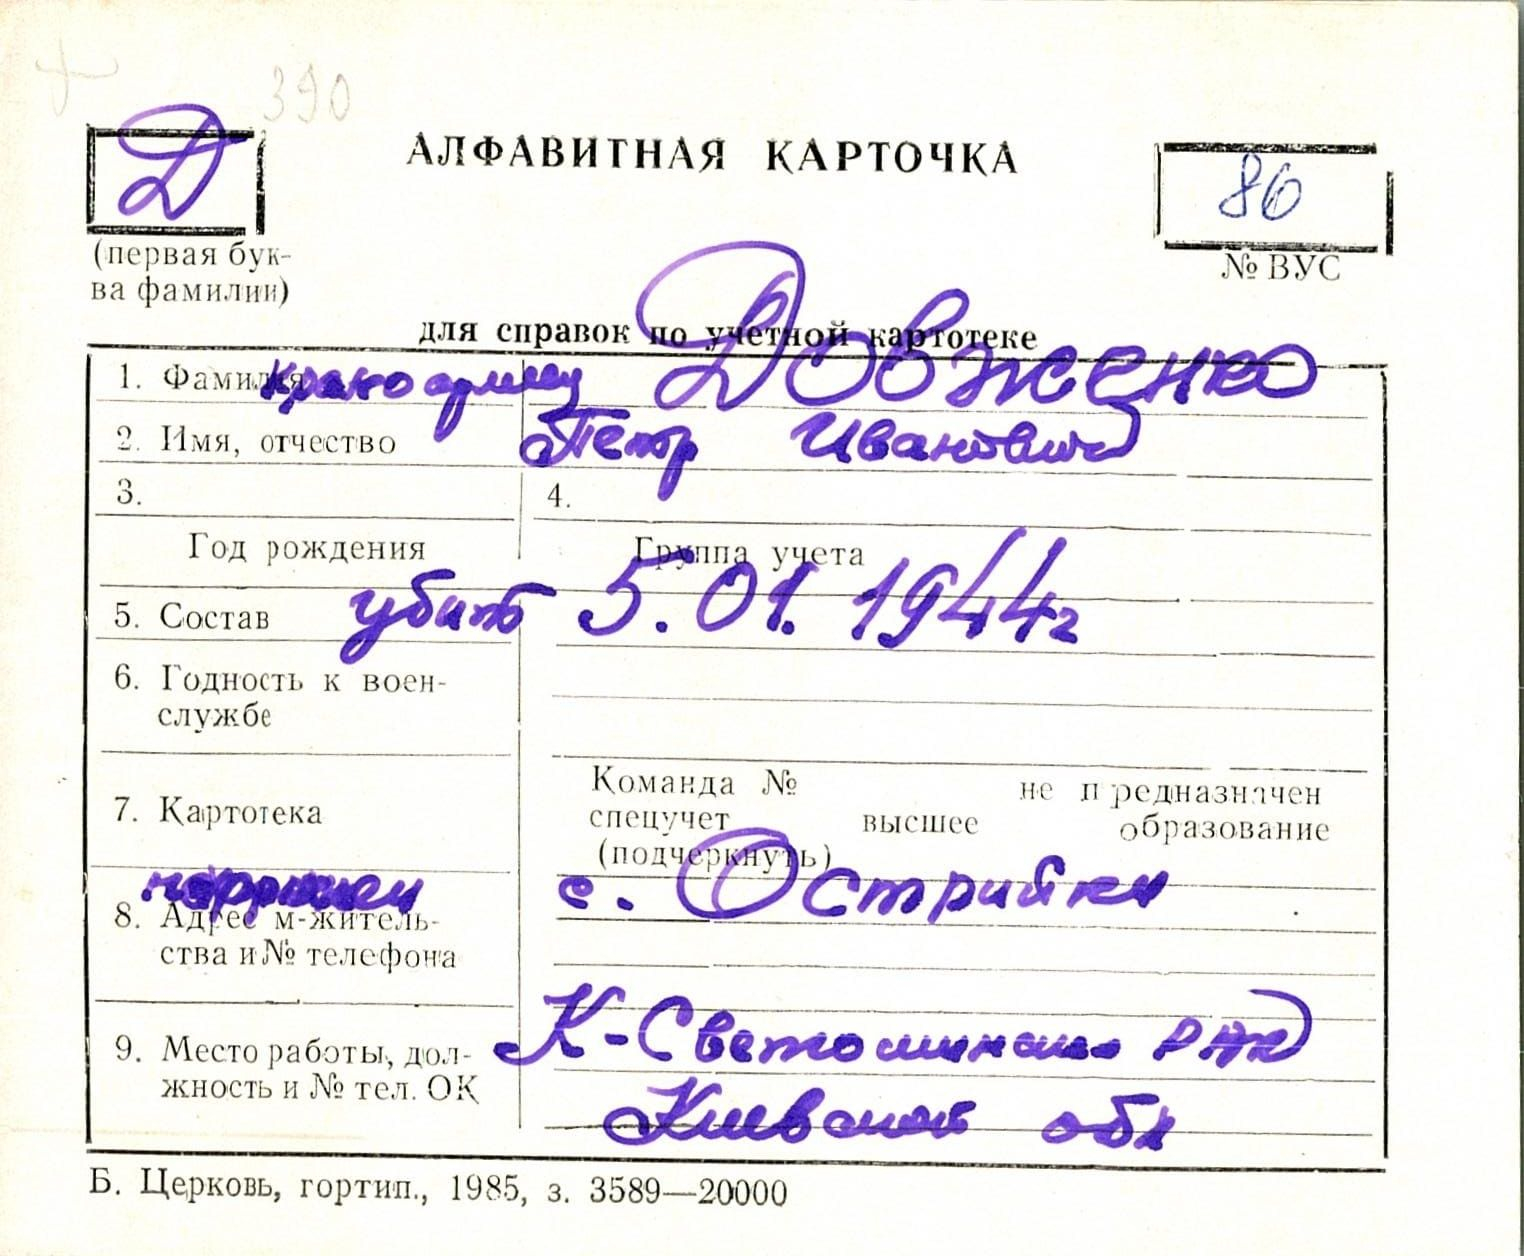 390
Д
АЛФАВИТНАЯ КАРТОЧКА
86
(первая бук-
ва фамилии)
№ ВУС
для справок по учетной картотеке
1. Фамилия Довженко
2. Имя, отчество Петр Иванович
3.
4.
Год рождения
Группа учета
5. Состав убит 5.01.1944г
6. Годность к воен-
службе
Команда № не предназначен
7. Картотека
спецучет высшее образование
(подчеркнуть)
с. Острийки
8. Адрес м-житель-
ства и № телефона
К-Светошинского
9. Место работы, дол-
жность и № тел. ОК
Киевской обл
Б. Церковь, гортип., 1985, з. 3589—20000